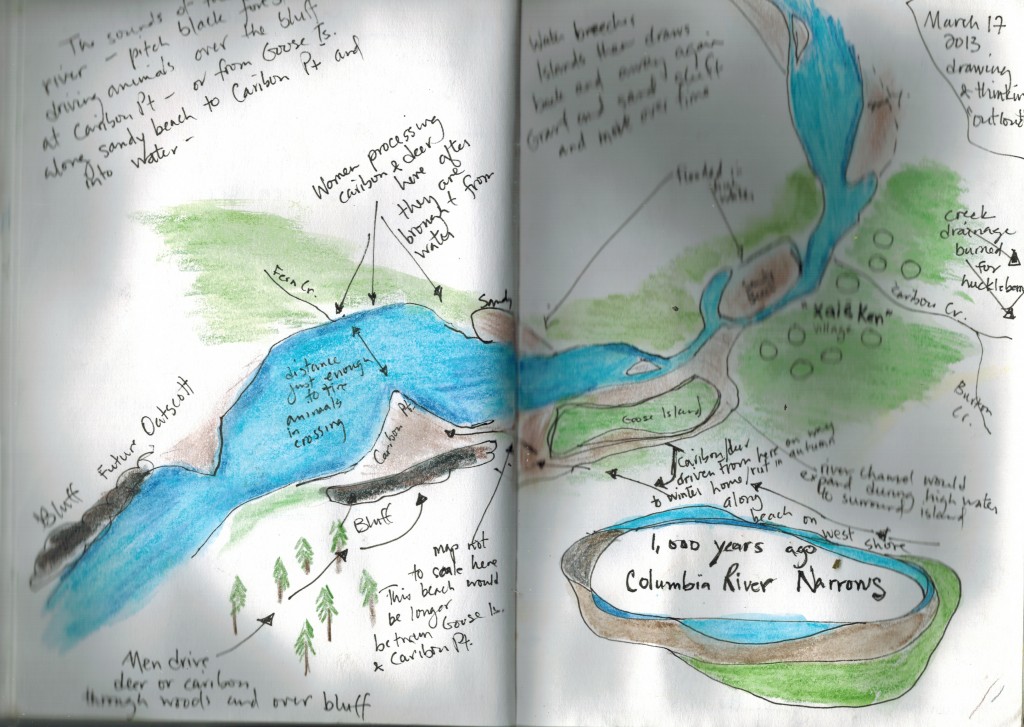 The sounds of the
river — pitch black
driving animals over the bluff
at Caribou Pt — or from Goose Is.
along sandy beach to Caribou Pt and
into water —
Women processing
caribou & deer
here after
they are
brought from
water
Fern Cr.
Sandy
distance
just enough
to tire
animals
in
crossing
Caribou Pt
Future Oatscott
Bluff
Bluff
map not
to scale here
This beach would
be longer
between Goose Is.
& Caribou Pt.
Men drive
deer or caribou
through woods and over bluff
Water breeches
Islands then draws
back and
Gravel and sand shift
and move over time
March 17
2013
drawing
& thinkin
"outlou
Flooded in
high
water
Sandy
creek
drainage
burned
for
huckleberry
Caribou Cr.
"Xaieken"
village
Burton
Cr.
Goose Island
Caribou/deer
driven from here
to winter home/rut
along
beach on
west shore
on way
in autumn
river channel would
expand during high water
to surround island
1,000 years ago
Columbia River Narrows